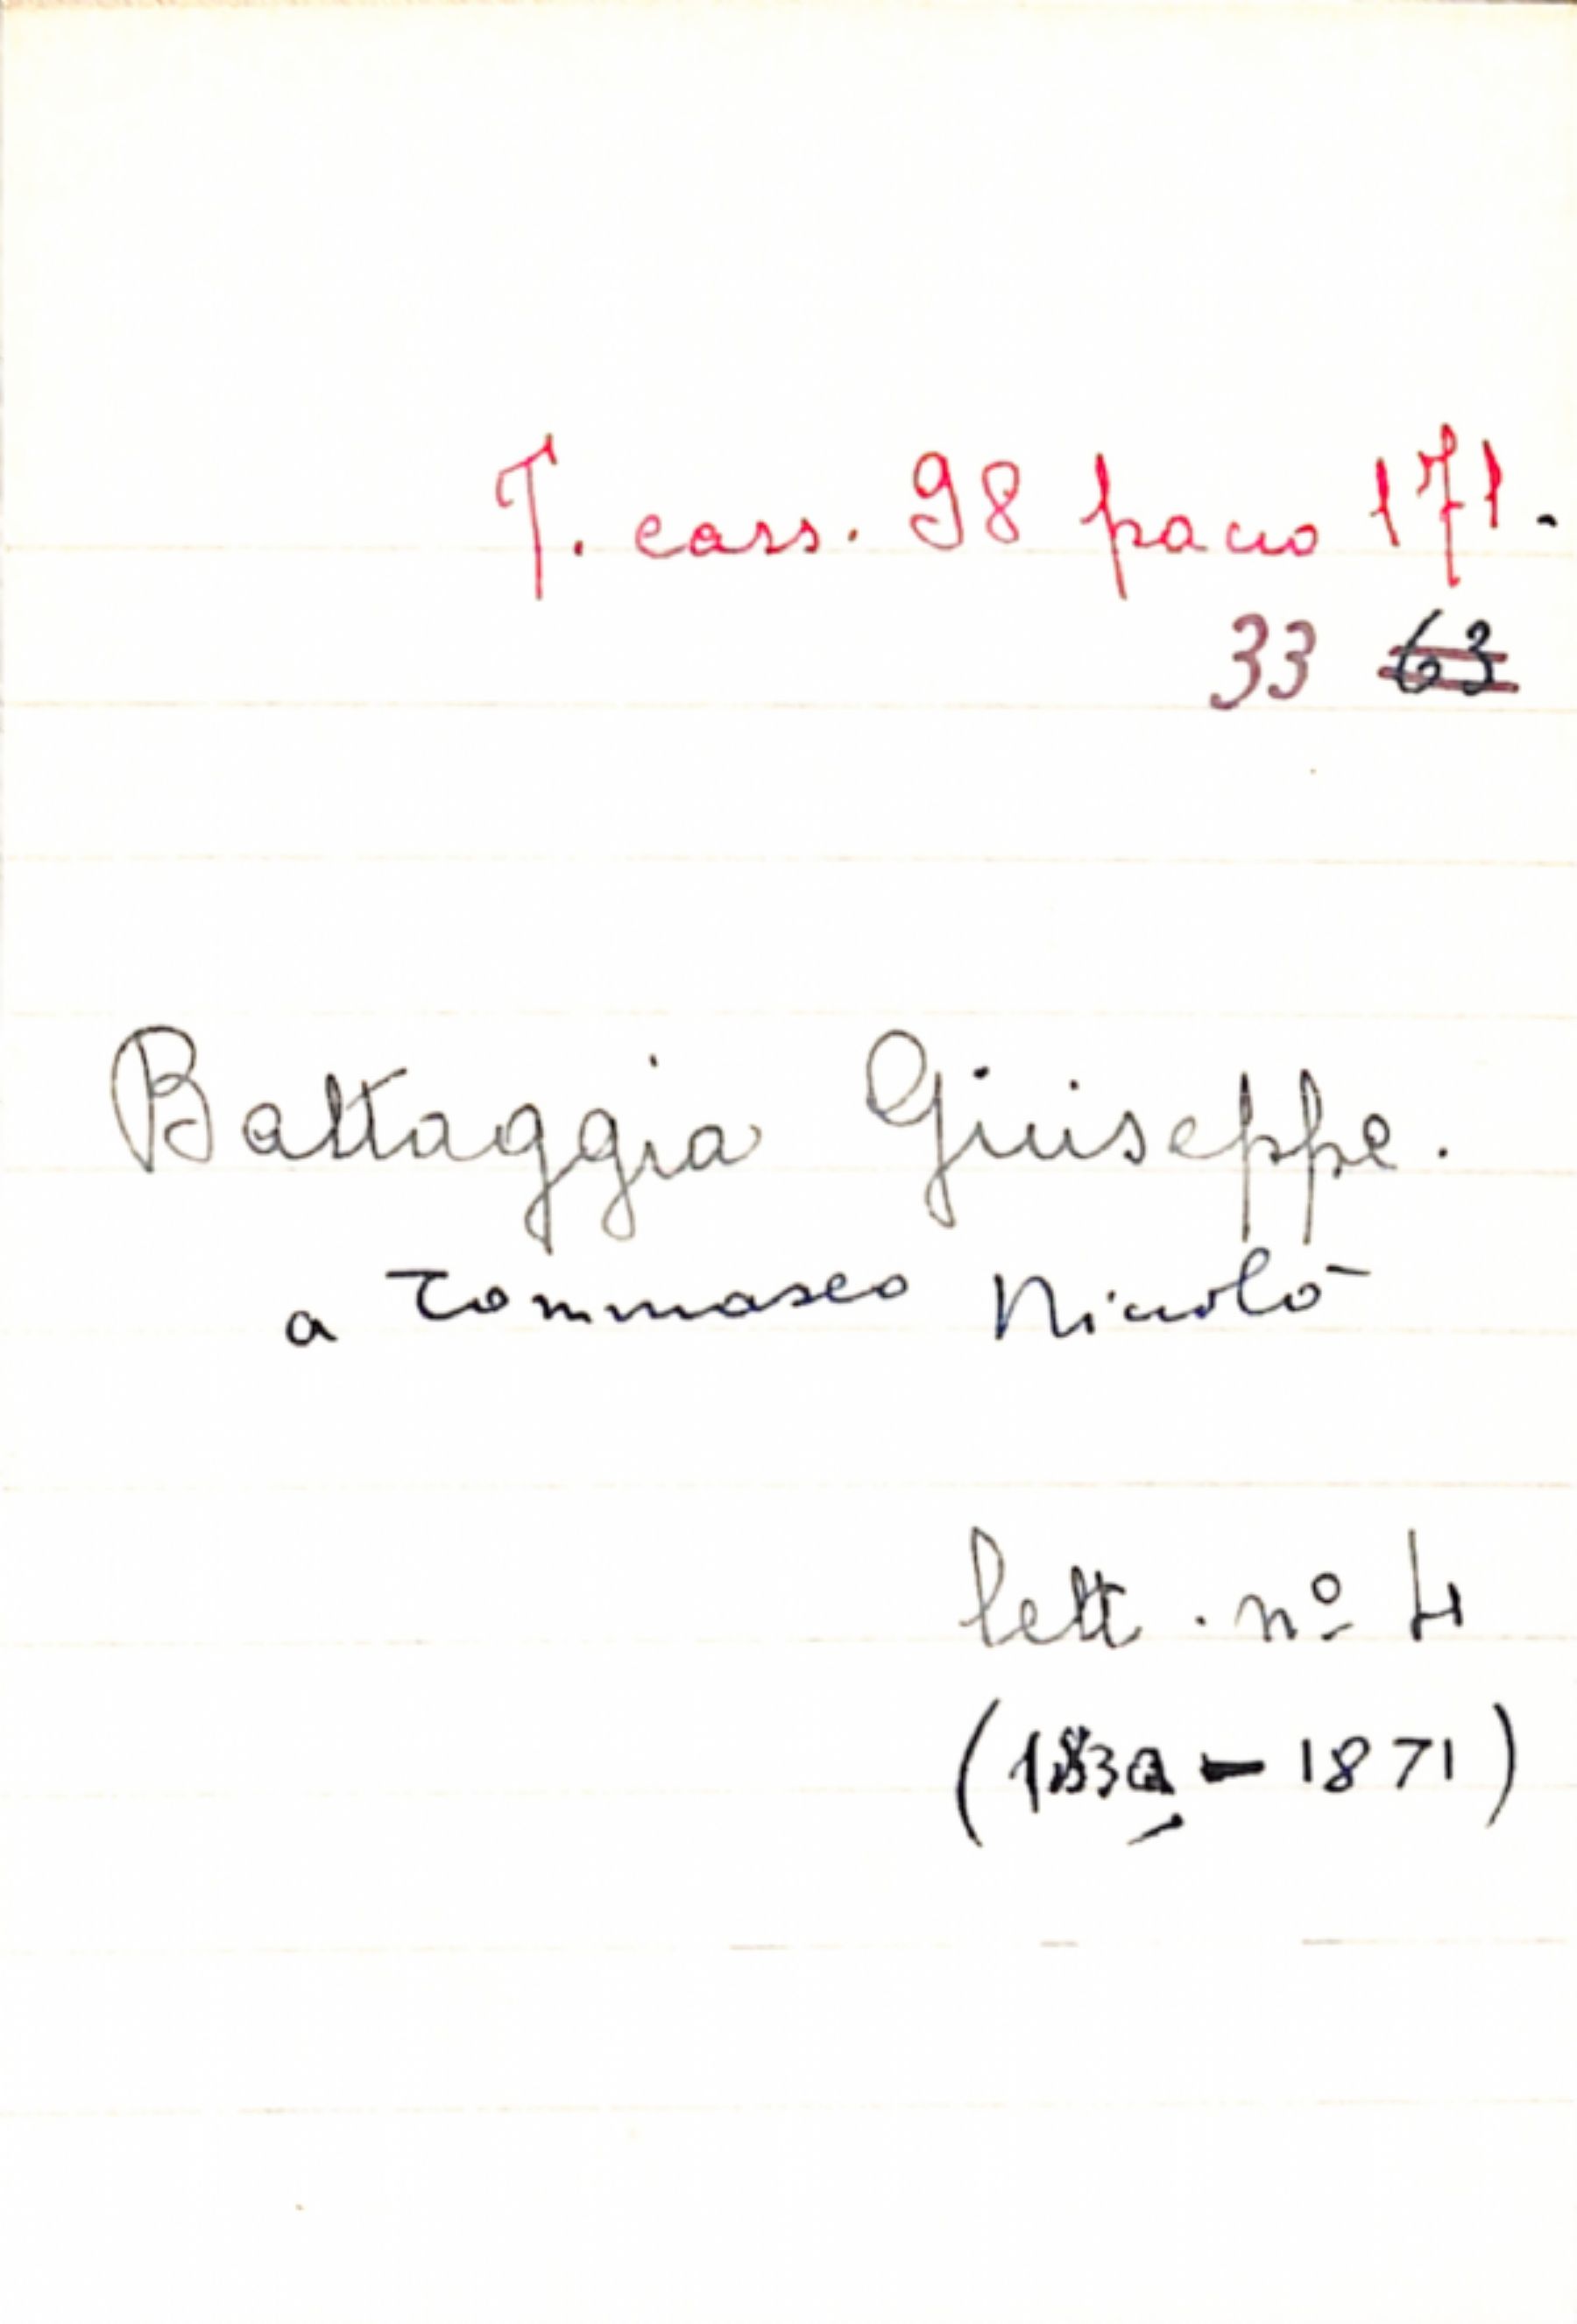 T. cass. 98 pacco 171.
33 63
Battaggia Giuseppe.
a Tommaseo Niccolò
lett. nº 4
( - 1871)